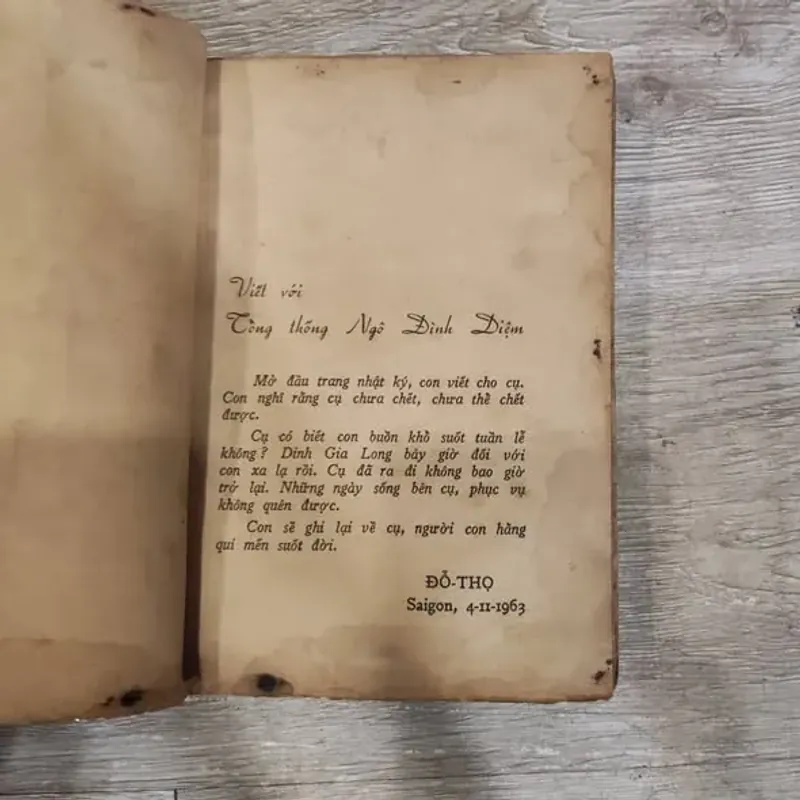 Viết với
Tổng thống Ngô Đình Diệm
Mở đầu trang nhật ký, con viết cho cụ.
Con nghĩ rằng cụ chưa chết, chưa thể chết
được.
Cụ có biết con buồn khổ suốt tuần lễ
không? Dinh Gia Long bây giờ đối với
con xa lạ rồi. Cụ đã ra đi không bao giờ
trở lại. Những ngày sống bên cụ, phục vụ
không quên được.
Con sẽ ghi lại về cụ, người con hằng
quí mến suốt đời.
ĐỖ-THỌ
Saigon, 4-11-1963